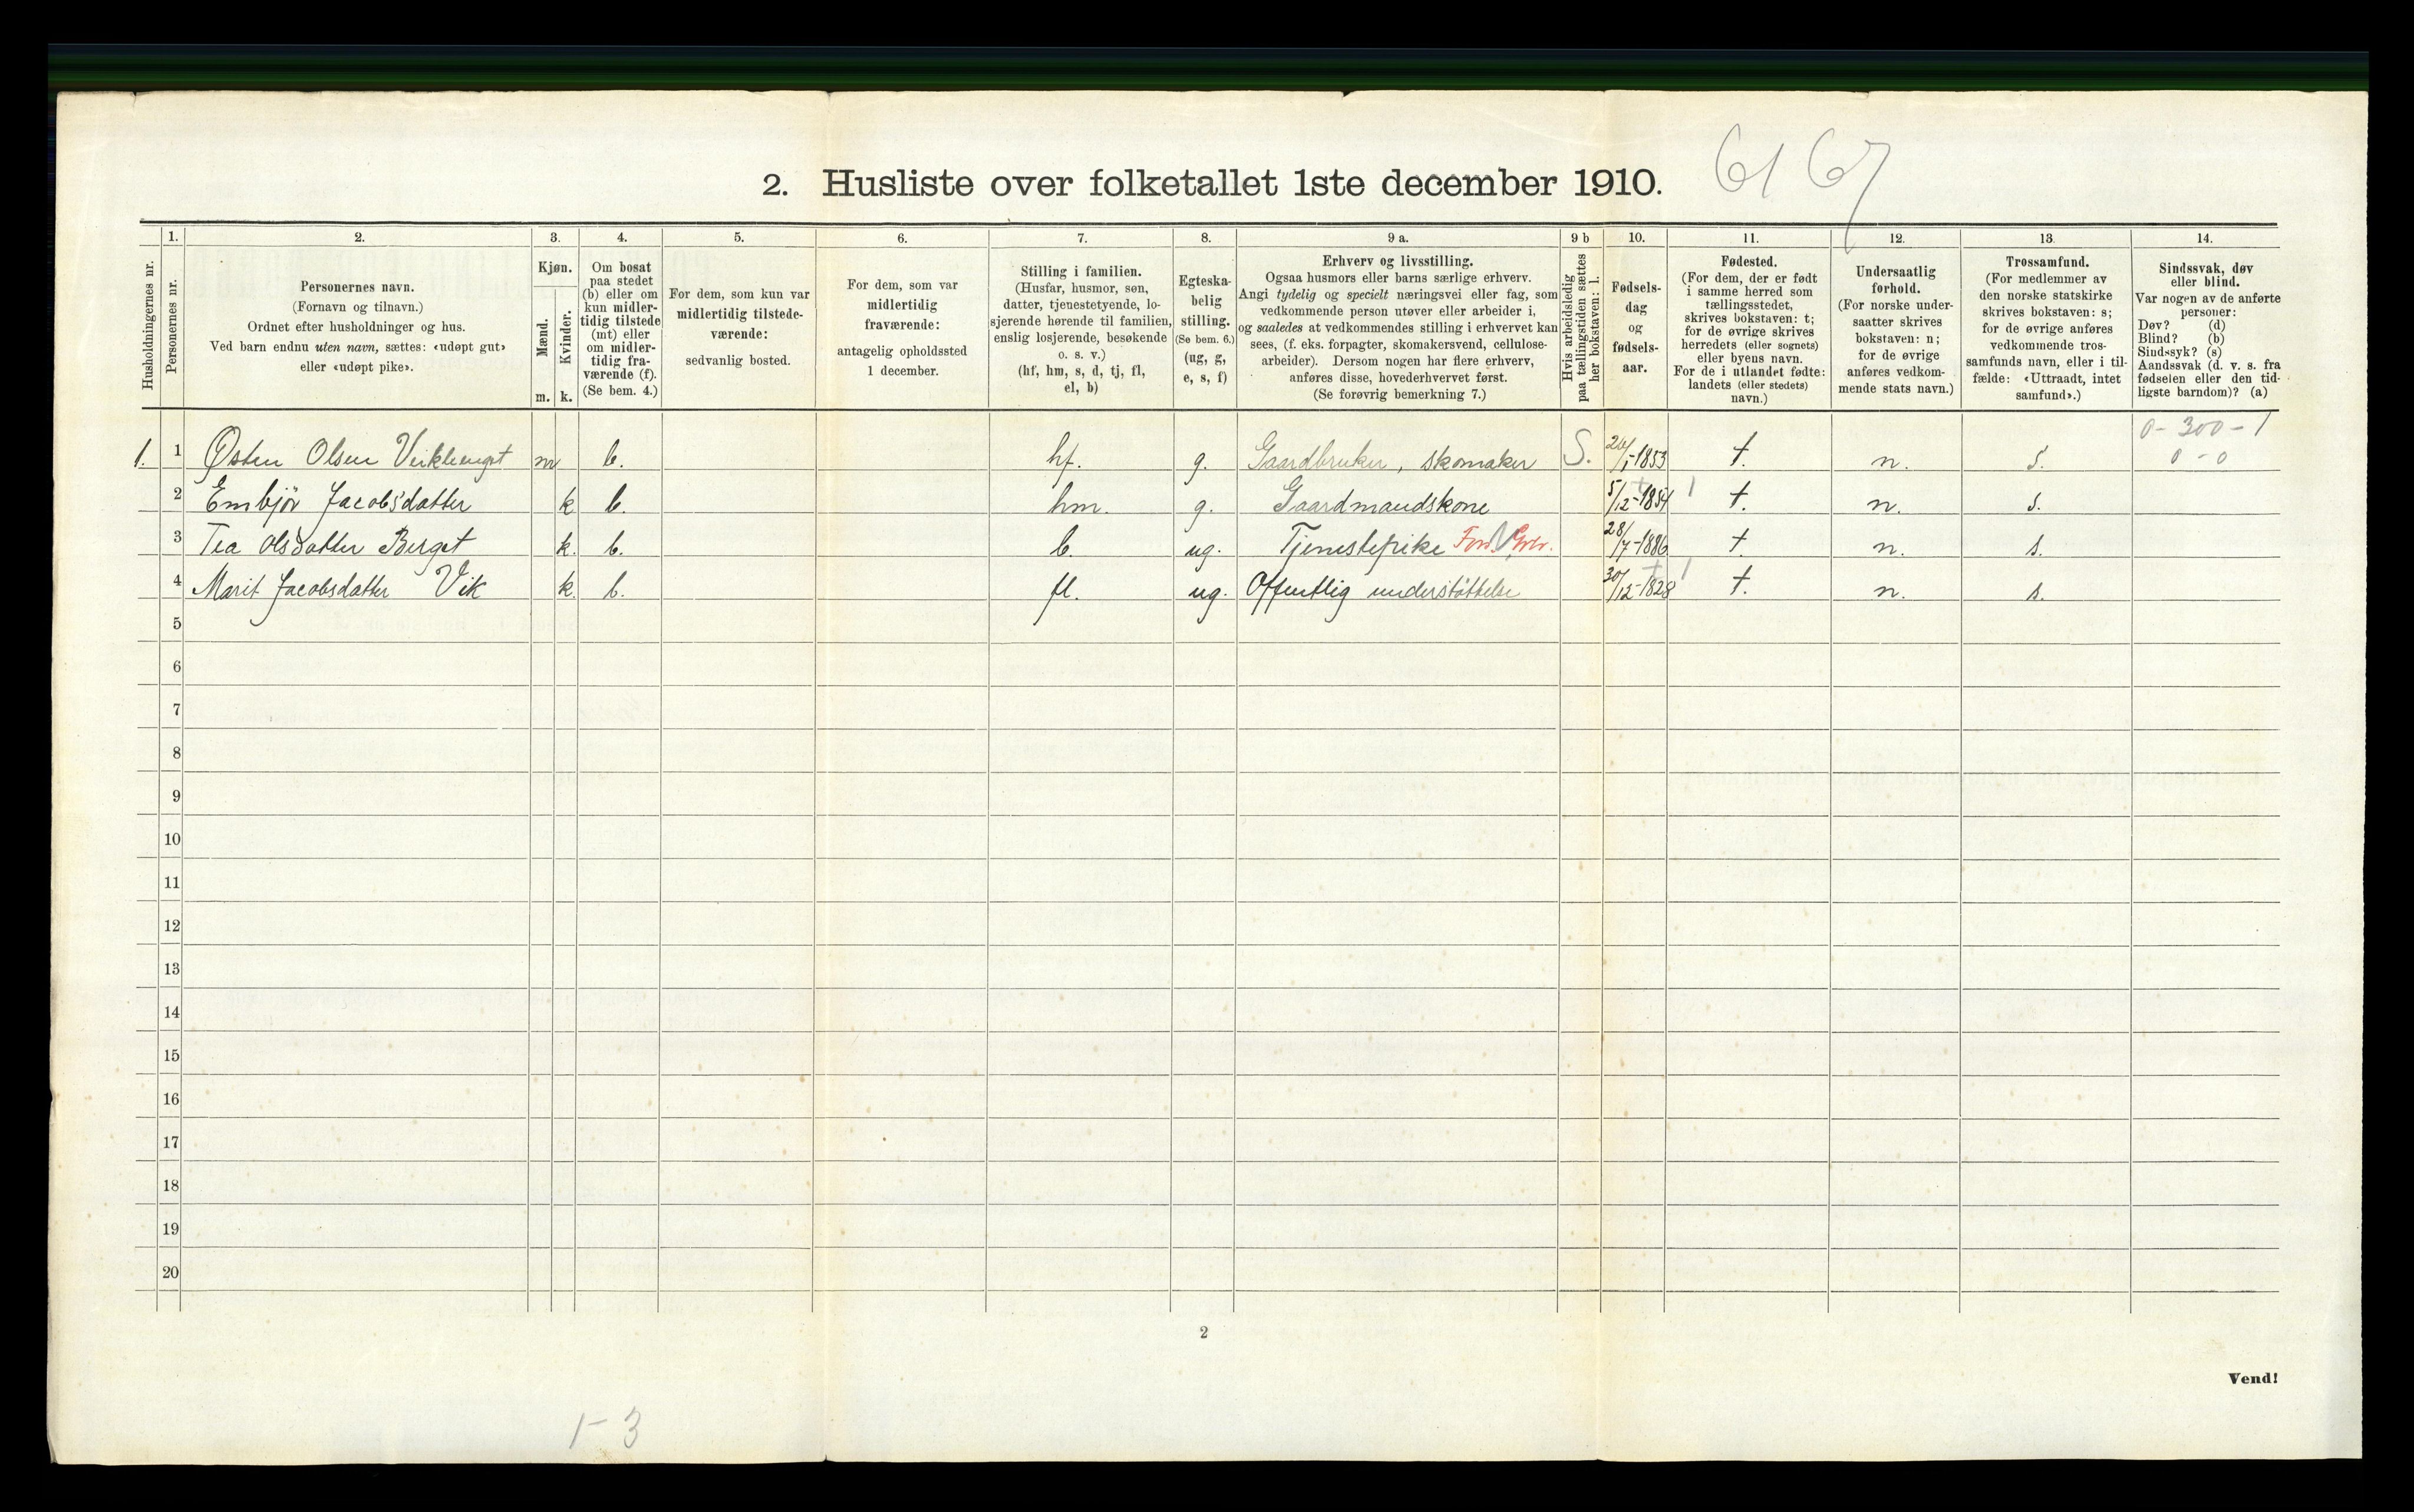 61 67
2. Husliste over folketallet 1ste december 1910.
Husholdningernes nr.
1.
Personernes nr.
2.
Personernes navn.
(Fornavn og tilnavn.)
Ordnet efter husholdninger og hus.
Ved barn endnu uten navn, sættes: «udøpt gut»
eller «udøpt pike».
3.
Kjøn.
Mænd.
Kvinder.
m. k.
4.
Om bosat
paa stedet
(b) eller om
kun midler-
tidig tilstede
(mt) eller
om midler-
tidig fra-
værende (f).
(Se bem. 4.)
5.
For dem, som kun var
midlertidig tilstede-
værende:
sedvanlig bosted.
6.
For dem, som var
midlertidig
fraværende:
antagelig opholdssted
1 december.
7.
Stilling i familien.
(Husfar, husmor, søn,
datter, tjenestetyende, lo-
sjerende hørende til familien,
enslig losjerende, besøkende
o. s. v.)
(hf, hm, s, d, tj, fl,
el, b)
8.
Egteska-
belig
stilling.
(Se bem. 6.)
(ug, g,
e, s, f)
9 a.
Erhverv og livsstilling.
Ogsaa husmors eller barns særlige erhverv.
Angi tydelig og specielt næringsvei eller fag, som
vedkommende person utøver eller arbeider i,
og saaledes at vedkommendes stilling i erhvervet kan
sees, (f. eks. forpagter, skomakersvend, cellulose-
arbeider). Dersom nogen har flere erhverv,
anføres disse, hovederhvervet først.
(Se forøvrig bemerkning 7.)
9 b
Hvis arbeidsledig
paa tællingstiden sættes
her bokstaven: l.
10.
Fødsels-
dag
og
fødsels-
aar.
11.
Fødested.
(For dem, der er født
i samme herred som
tællingsstedet,
skrives bokstaven: t;
for de øvrige skrives
herredets (eller sognets)
eller byens navn.
For de i utlandet fødte:
landets (eller stedets)
navn.)
12.
Undersaatlig
forhold.
(For norske under-
saatter skrives
bokstaven: n;
for de øvrige
anføres vedkom-
mende stats navn.)
13.
Trossamfund.
(For medlemmer av
den norske statskirke
skrives bokstaven: s;
for de øvrige anføres
vedkommende tros-
samfunds navn, eller i til-
fælde: «Uttraadt, intet
samfund».)
14.
Sindssvak, døv
eller blind.
Var nogen av de anførte
personer:
Døv? (d)
Blind? (b)
Sindssyk? (s)
Aandssvak (d. v. s. fra
fødselen eller den tid-
ligste barndom)? (a)
0 - 300 - 1
0 - 0
1. 1 Østen Olsen Veiklienget m b. hf. g. Gaardbruker, skomaker S. 26/1-1853 t. n. s.
2 Embjør Jacobsdatter k b. hm. g. Gaardmandskone 5/12-1854 t. n. s.
3 Tea Olsdatter Berget k. b. b. ug. Tjenestepike 28/7-1886 t. n. s.
4 Marit Jacobsdatter Vik k. b. fl. ug. Offentlig understøttelse 30/12-1828 t. n. s.
5
6
7
8
9
10
11
12
13
14
15
16
17
18
19
20
2
Vend!
1-3